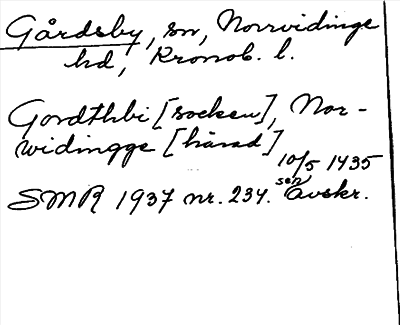 Gårdsby, sn, Norrvidinge
hd, Kronob. l.
Gordthbi [socken], Nor-
widingge [härad]
10/5 1435
SMR 1937 nr. 234. sen avskr.